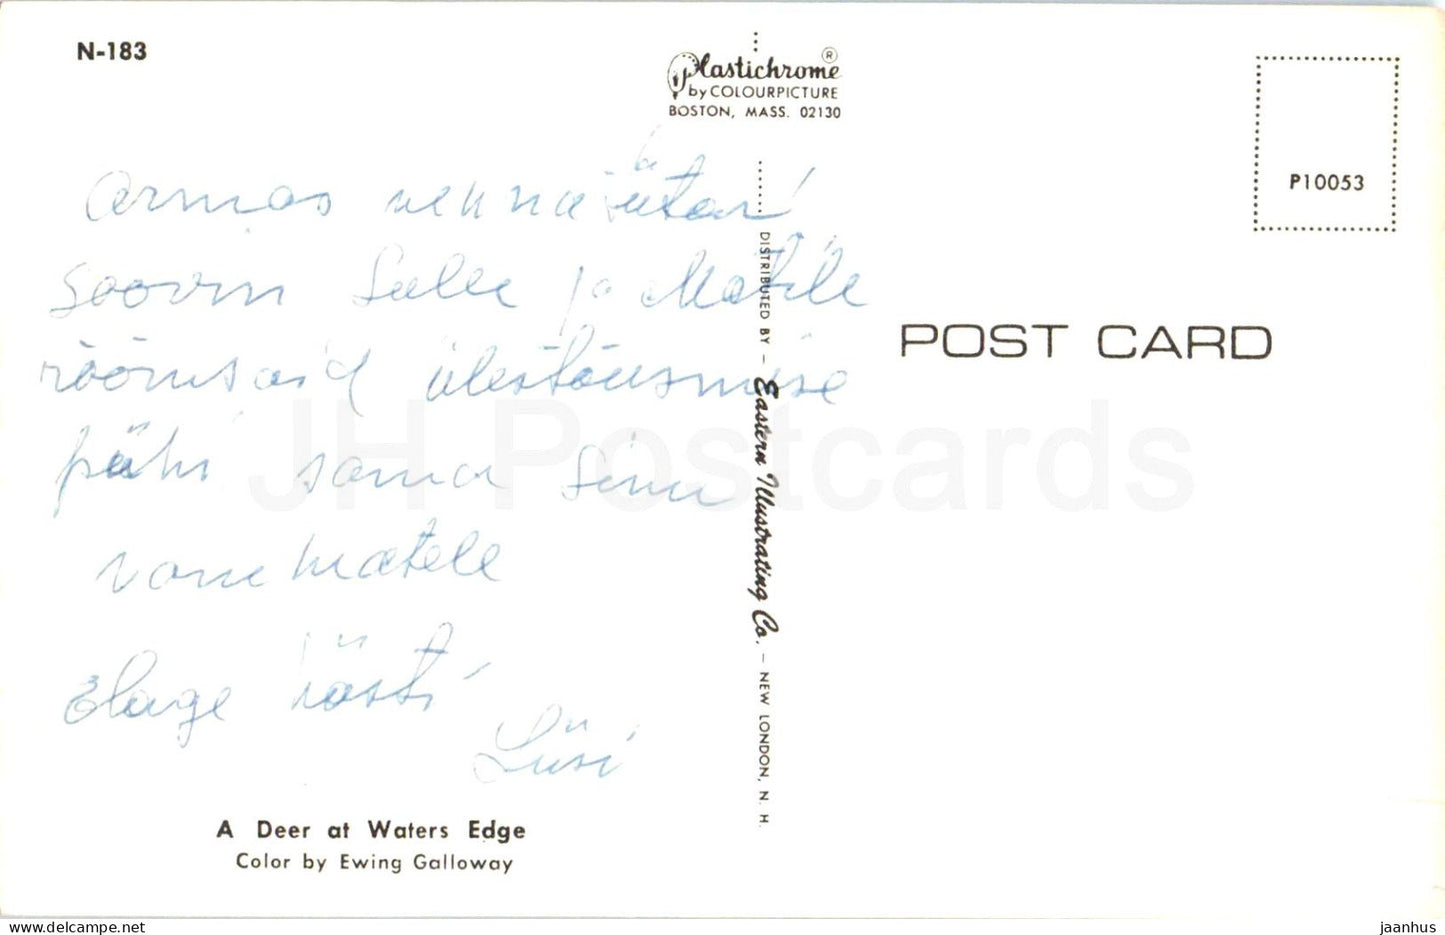 N-183
Plastichrome ®
by COLOURPICTURE
BOSTON, MASS. 02130
P10053
POST CARD
Armas vennatütar
soovin Sulle ja Matile
rõõmsaid ülestõusmise
pühi sama Sinu
vanematele
Elage hästi
Lüsi
DISTRIBUTED BY – Eastern Illustrating Co. – NEW LONDON, N. H.
A Deer at Waters Edge
Color by Ewing Galloway
JH Postcards
jaanhus
delcampe.net